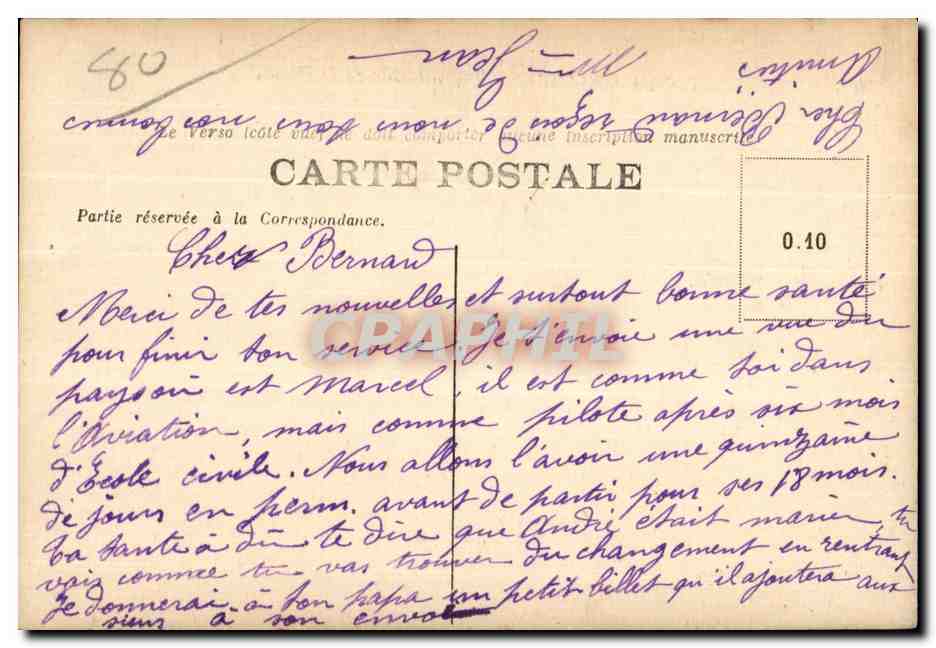 80
Le Verso (côté vue) ne doit comporter aucune inscription manuscrite
CARTE POSTALE
Partie réservée à la Correspondance.
0.10
CRAPHIL
Cher Bernard
Merci de tes nouvelles et surtout bonne santé
pour finir ton service. Je t'envoie une vue du
pays où est Marcel, il est comme toi dans
l'Aviation, mais comme pilote après six mois
d'Ecole civile. Nous allons l'avoir une quinzaine
de jours en perm. avant de partir pour ses 18 mois.
ta tante à dû te dire que André était marier, tu
vois comme tu vas trouver du changement en rentrant
Je donnerai à ton papa un petit billet qu'il ajoutera aux
siens à son envoi
Cher Bernard reçois de nous tous nos bonnes
Amitiés
Jean